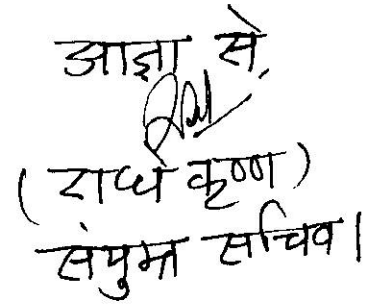 आज्ञा से,
(राधे कृष्ण)
संयुक्त सचिव।